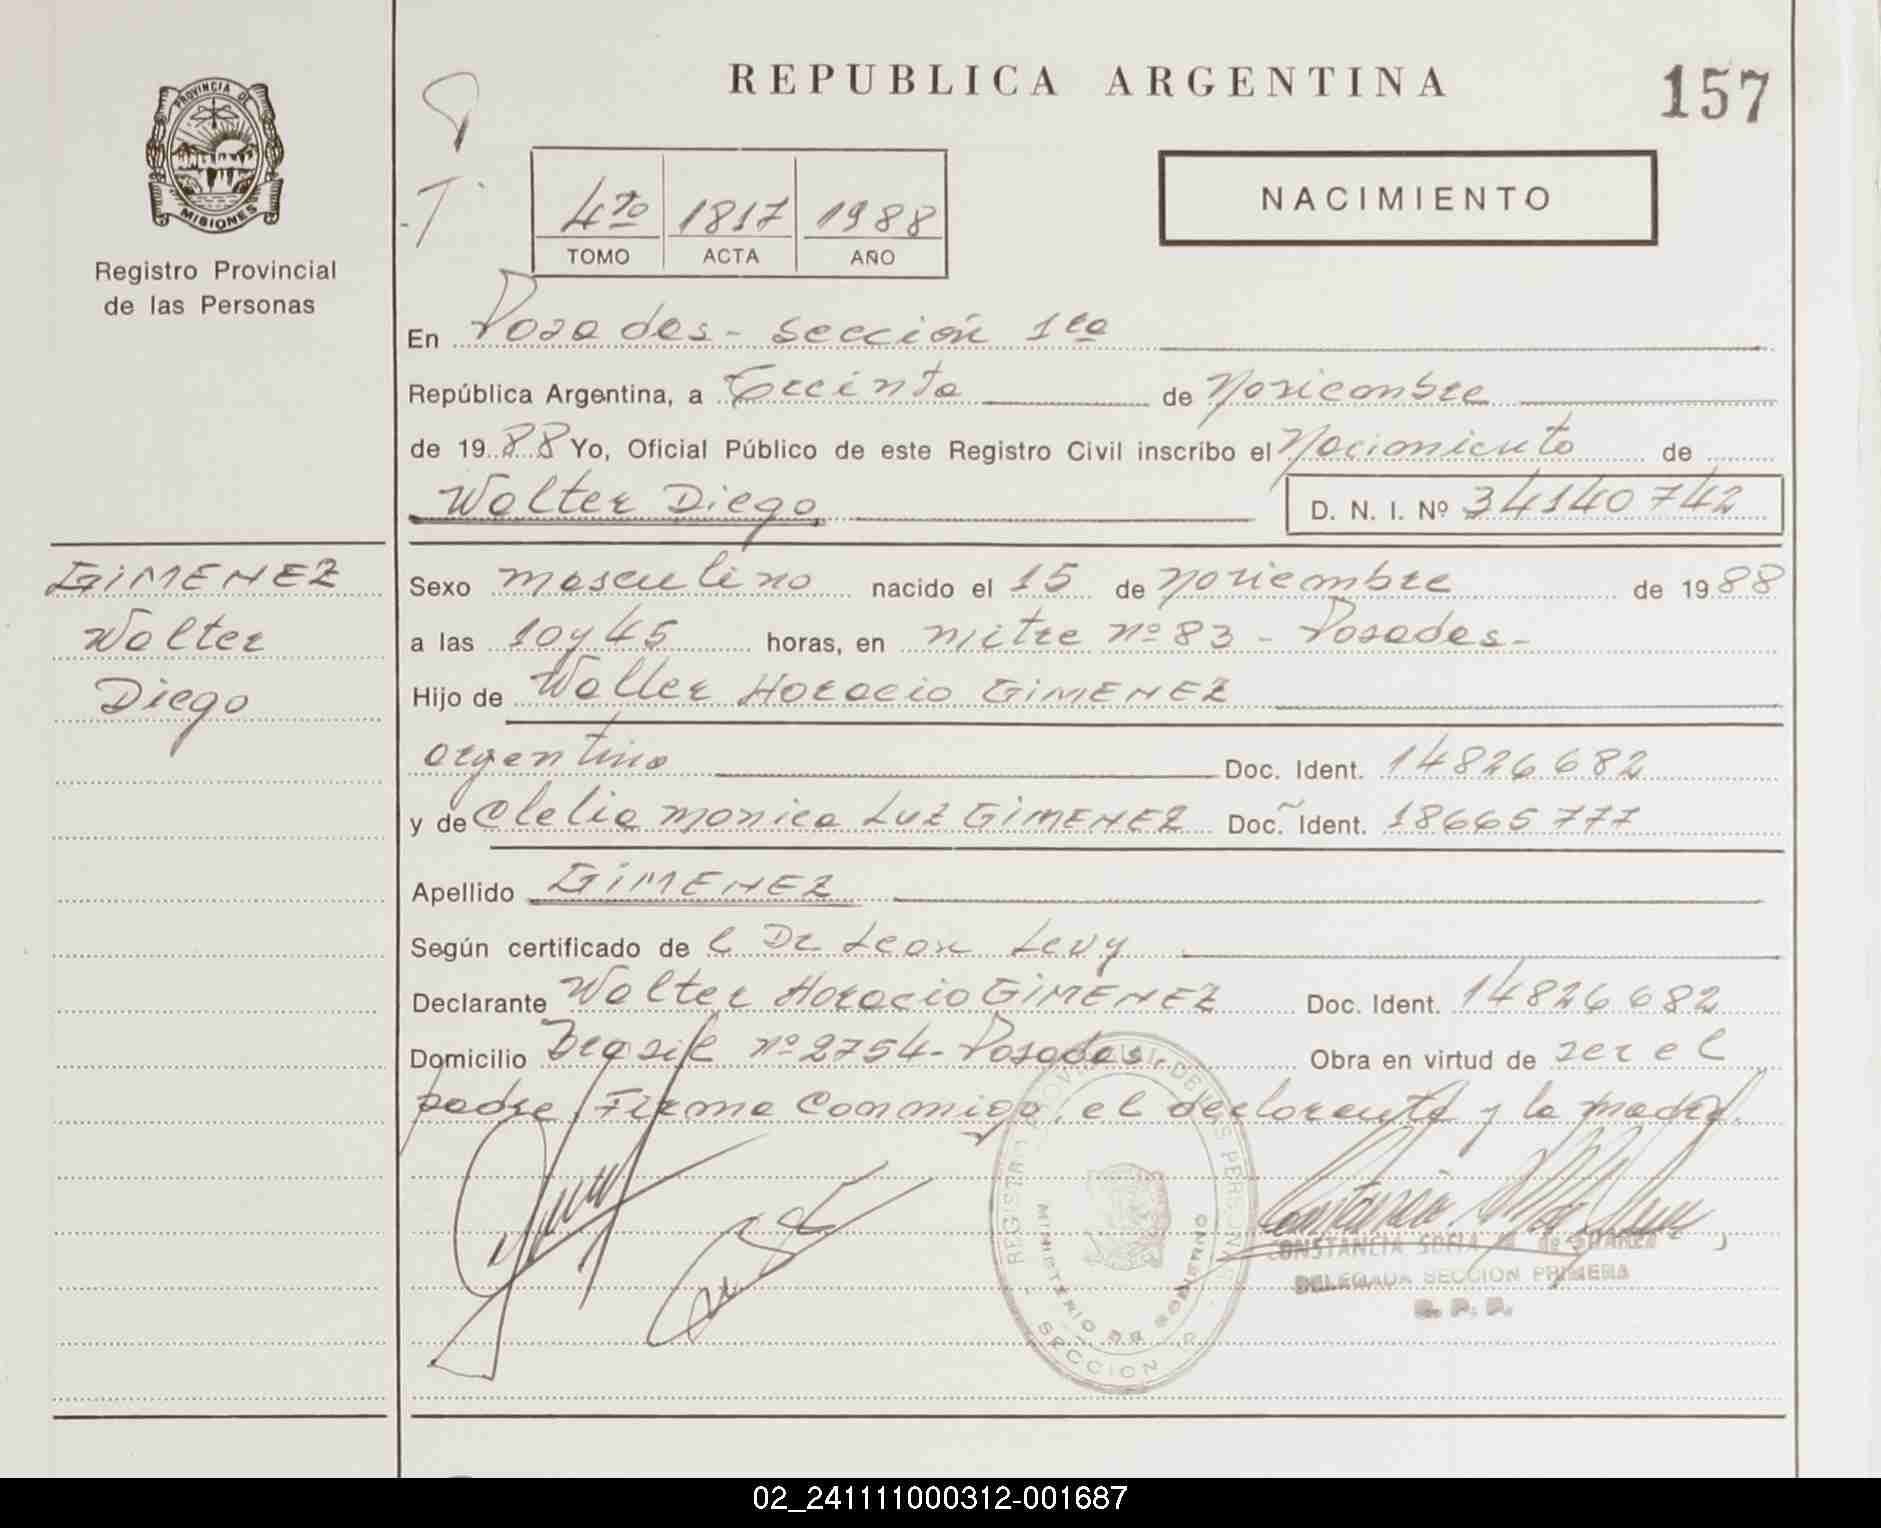 PROVINCIA DE
MISIONES
Registro Provincial
de las Personas
REPUBLICA ARGENTINA
157
NACIMIENTO
4to 1817 1988
TOMO ACTA AÑO
En Posadas - Sección 1ra
República Argentina, a treinta de Noviembre
de 1988 Yo, Oficial Público de este Registro Civil inscribo el Nacimiento de
Walter Diego D. N. I. Nº 34140742
GIMENEZ
Walter
Diego
Sexo masculino nacido el 15 de noviembre de 1988
a las 10 y 45 horas, en mitre nº 83 - Posadas -
Hijo de Walter Horacio GIMENEZ
argentino Doc. Ident. 14826682
y de Clelia monica Luz GIMENEZ Doc. Ident. 18665777
Apellido GIMENEZ
Según certificado de l Dr Leon Levy
Declarante Walter Horacio GIMENEZ Doc. Ident. 14826682
Domicilio Brasil nº 2754 - Posadas. Obra en virtud de ser el
padre. Firma Conmigo, el declarante y la madre.
MINISTERIO DE GOBIERNO
SECCION
CONSTANCIA SOFIA de SUAREZ
DELEGADA SECCION PRIMERA
R. P. P.
02_241111000312-001687